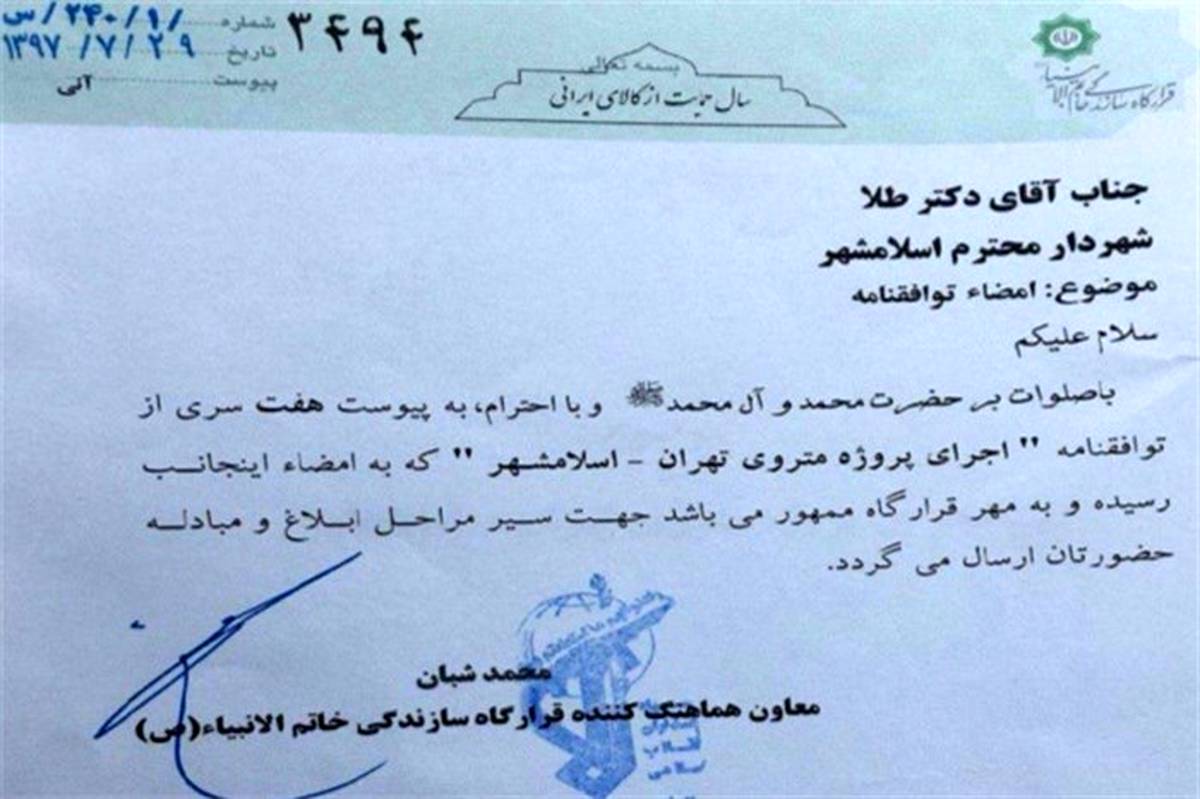 قرارگاه سازندگی خاتم الانبیاء
بسمه تعالی
سال حمایت از کالای ایرانی
شماره ۲۴۰/۱/س/ ۳۴۹۴
تاریخ ۱۳۹۷/۷/۲۹
پیوست آنی
جناب آقای دکتر طلا
شهردار محترم اسلامشهر
موضوع: امضاء توافقنامه
سلام علیکم
باصلوات بر حضرت محمد و آل محمدﷺ و با احترام، به پیوست هفت سری از
توافقنامه " اجرای پروژه متروی تهران - اسلامشهر " که به امضاء اینجانب
رسیده و به مهر قرارگاه ممهور می باشد جهت سیر مراحل ابلاغ و مبادله
حضورتان ارسال می گردد.
محمد شبان
معاون هماهنگ کننده قرارگاه سازندگی خاتم الانبیاء(ص)